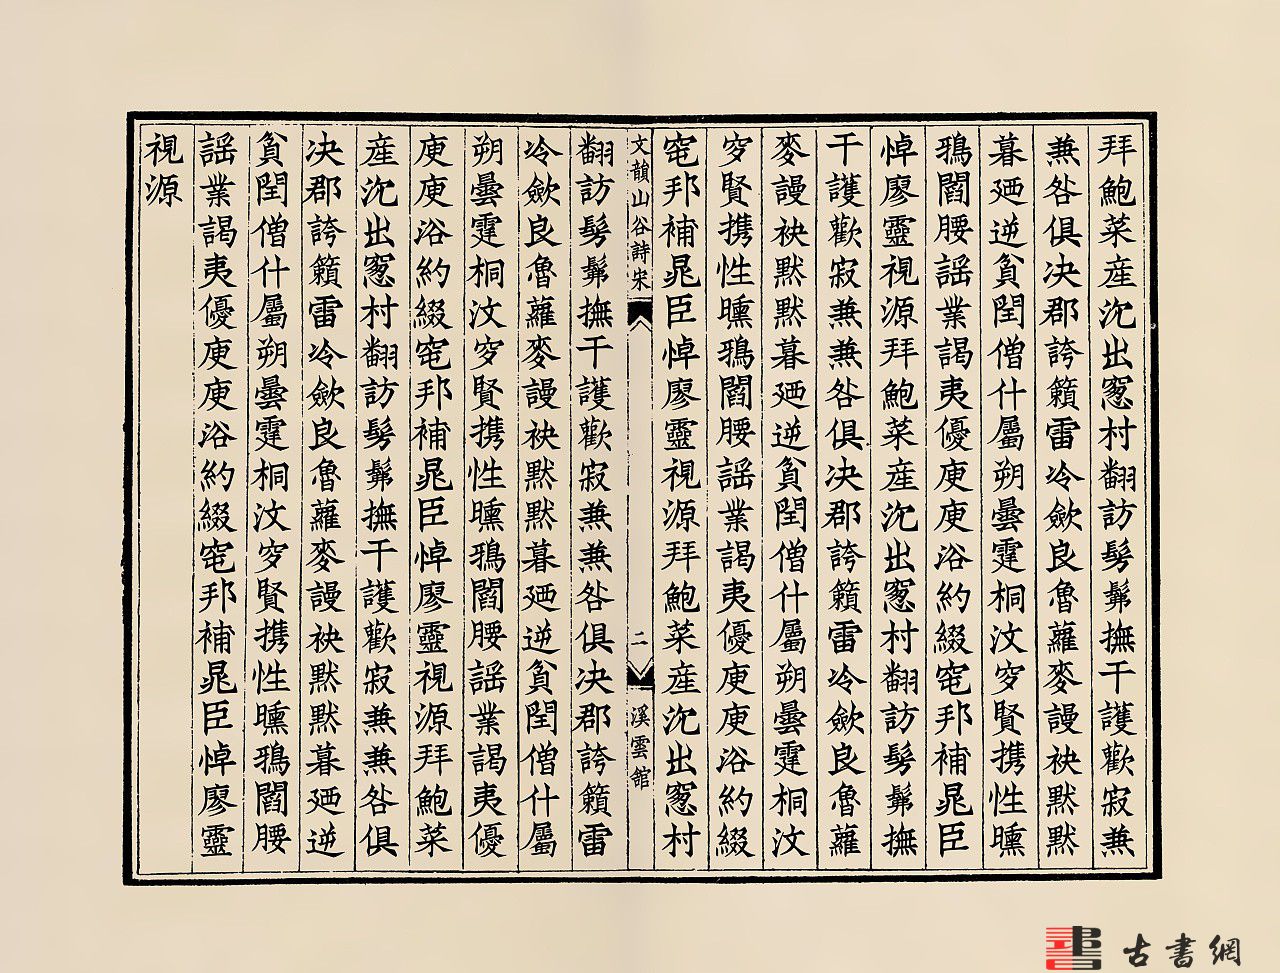 拜鮑菜産沈出窻村翻訪髣髴撫干護歡寂兼
兼咎俱决郡誇籟雷冷歛良魯蘿麥謾袂黙黙
暮廼逆貧閏僧什屬朔曇霆桐汶穸賢携性曛
鵶閻腰謡業謁夷優庾庾浴約綴窀邦補晁臣
悼廖靈視源拜鮑菜産沈出窻村翻訪髣髴撫
干護歡寂兼兼咎俱决郡誇籟雷冷歛良魯蘿
麥謾袂黙黙暮廼逆貧閏僧什屬朔曇霆桐汶
穸賢携性曛鵶閻腰謡業謁夷優庾庾浴約綴
窀邦補晁臣悼廖靈視源拜鮑菜産沈出窻村
文韻山谷詩宋
二
溪雲館
翻訪髣髴撫干護歡寂兼兼咎俱决郡誇籟雷
冷歛良魯蘿麥謾袂黙黙暮廼逆貧閏僧什屬
朔曇霆桐汶穸賢携性曛鵶閻腰謡業謁夷優
庾庾浴約綴窀邦補晁臣悼廖靈視源拜鮑菜
産沈出窻村翻訪髣髴撫干護歡寂兼兼咎俱
决郡誇籟雷冷歛良魯蘿麥謾袂黙黙暮廼逆
貧閏僧什屬朔曇霆桐汶穸賢携性曛鵶閻腰
謡業謁夷優庾庾浴約綴窀邦補晁臣悼廖靈
視源
古書網